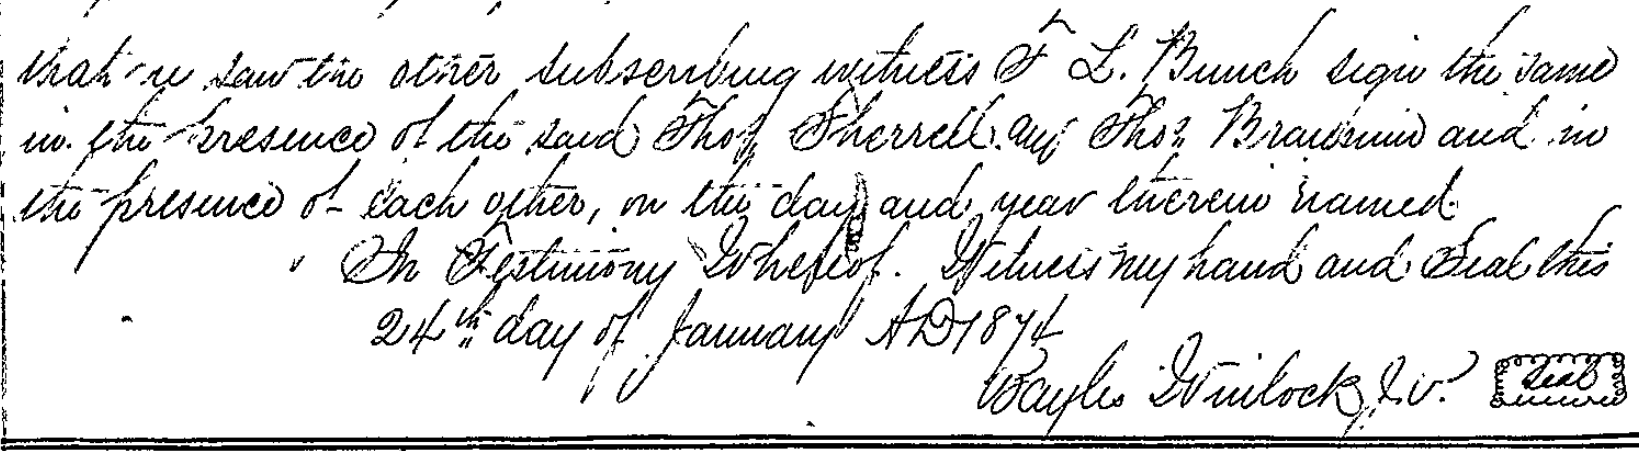 that he saw the other subscribing witness F L. Bunch sign the same
in the presence of the said Thos Sherrell and Thos and in
the presence of each other, on the day and year therein named.
In Testimony Whereof. Witness my hand and Seal this
24th day of January AD 1874
Bayles
Seal